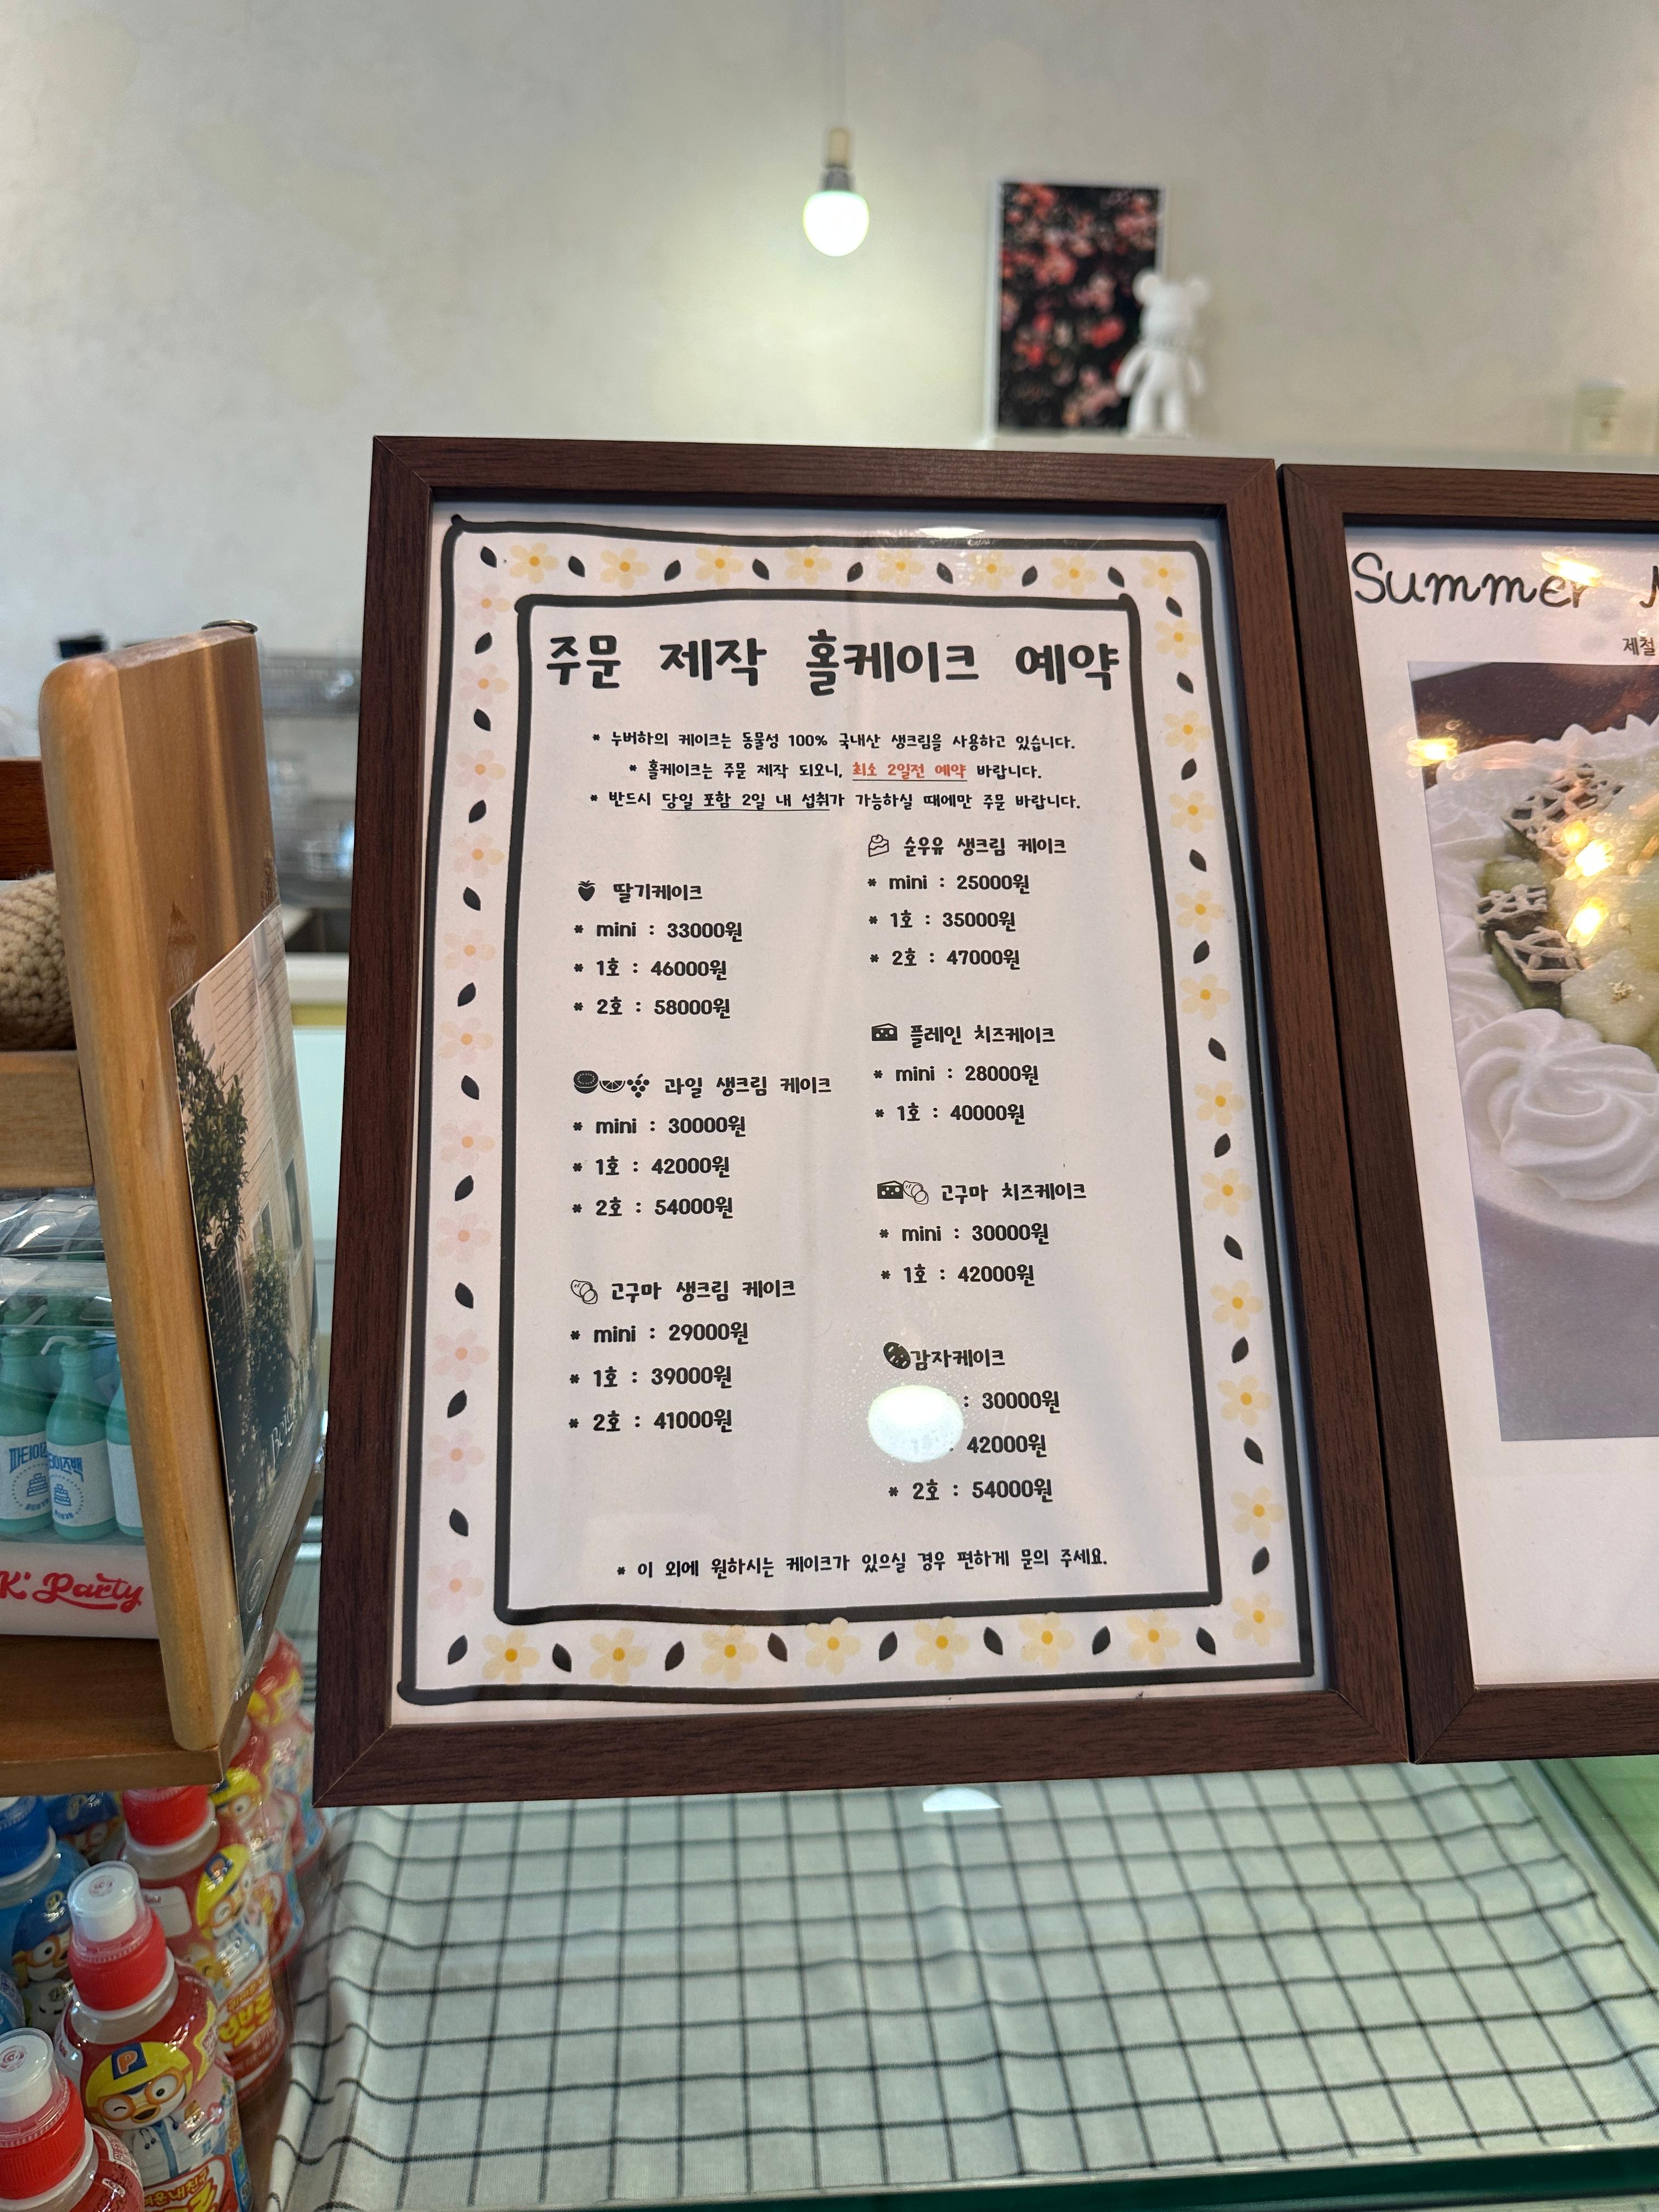 주문 제작 홀케이크 예약
* 누버하의 케이크는 동물성 100% 국내산 생크림을 사용하고 있습니다.
* 홀케이크는 주문 제작 되오니, 최소 2일전 예약 바랍니다.
* 반드시 당일 포함 2일 내 섭취가 가능하실 때에만 주문 바랍니다.
딸기케이크
* mini : 33000원
* 1호 : 46000원
* 2호 : 58000원
과일 생크림 케이크
* mini : 30000원
* 1호 : 42000원
* 2호 : 54000원
고구마 생크림 케이크
* mini : 29000원
* 1호 : 39000원
* 2호 : 41000원
순우유 생크림 케이크
* mini : 25000원
* 1호 : 35000원
* 2호 : 47000원
플레인 치즈케이크
* mini : 28000원
* 1호 : 40000원
고구마 치즈케이크
* mini : 30000원
* 1호 : 42000원
감자케이크
: 30000원
42000원
* 2호 : 54000원
* 이 외에 원하시는 케이크가 있으실 경우 편하게 문의 주세요.
Summer
제철
K' Party